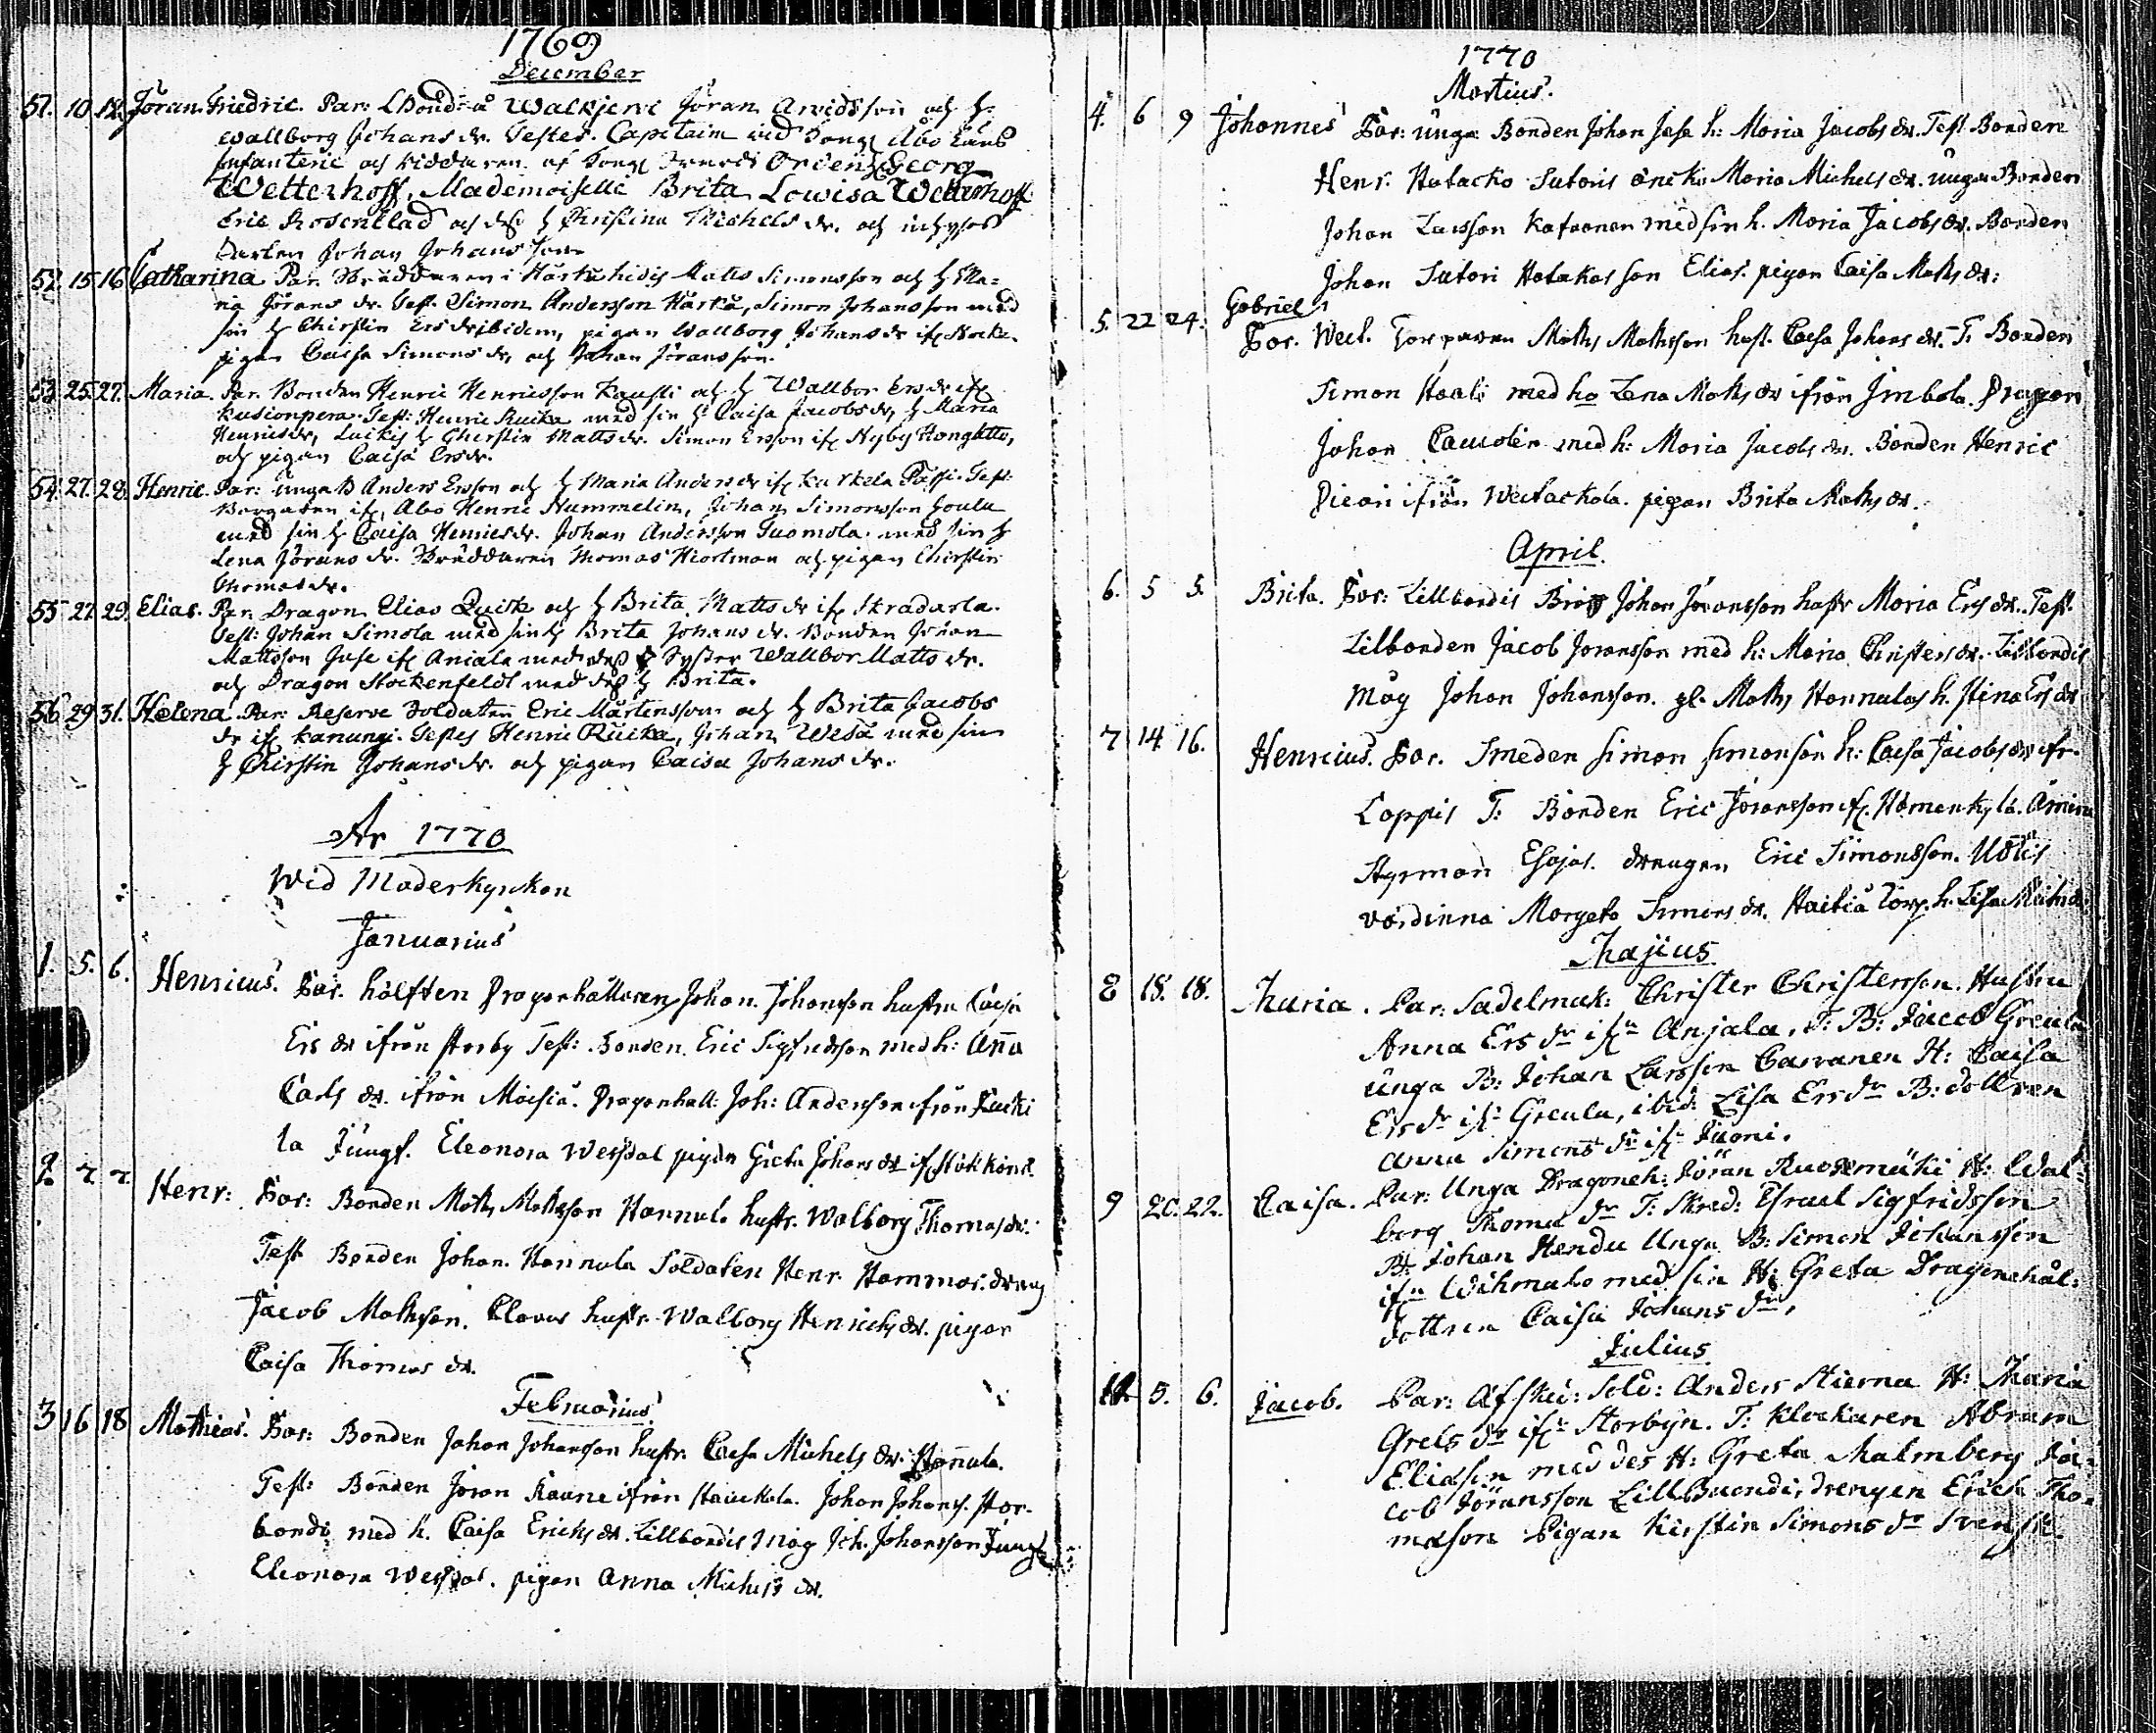 1769
December
51. 10. 12. Jöran Friedric. Par: Walkjervi Jöran Arvidsson och h:
Wallborg Johans dr. Testes. Capitain wid Kongl Åbo Läns
Infanterie och Riddaren af Kongl Swerds Orden Georg
Wetterhoff. Mademoiselle Brita Lowisa Wetterhoff
Eric Rosenblad och h Christina Michels dr. och
Johan Johansson
52. 15. 16. Catharina Par. Skräddaren i Matts Simonsson och h Ma-
ria Jörans dr. Test. Simon Andersson Härkä, Simon Johansson med
sin h Chirstin Ers dr ibidem, pigan Wallborg Johans dr
pigan Caisa Simons dr, och Johan Jöransson.
53. 25. 27. Maria. Par. Bonden Henric Henricsson Kausti och h Wallbor Ers dr ifr
Test: Henric Ruika med sin h: Caisa Jacobs dr, h Maria
Henrics dr, h Chirstin Matts dr. Simon Ersson ifr Nyby
och pigan Caisa Ers dr.
54. 27. 28. Henric. Par: unga B Anders Ersson och h Maria Anders dr ifr Kurkela Test:
Borgaren ifr, Åbo Henric Hummelin, Johan Simonsson
med sin h Caisa Henrics dr. Johan Andersson Tuomola med sin h
Lena Jörans dr. Skräddaren Thomas Hiortman och pigan Chirstin
Thomas dr.
55 27. 29. Elias. Par. Dragon Elias Quick och h Brita Matts dr ifr Skradarla.
Test: Johan Simola med sin h Brita Johans dr. Bonden Johan
Mattsson Juse ifr Aniala med dess Syster Wallbor Matts dr.
och Dragon Stockenfeldt med dess h Brita.
56. 29. 31. Helena. Par: Reserve Soldaten Eric Mårtensson och h Brita Jacobs
dr ifr Kanungi. Testes Henric Ruika, Johan med sin
h Chirstin Johans dr. och pigan Caisa Johans dr.
År 1770
Wid Moderkyrkan
Januarius
1. 5. 6. Henricus. Par. hälften Dragonhållaren Johan Johansson hustru Caisa
Ers dr ifrån Storby Test: Bonden Eric Sigfridsson med h: Anna
Carls dr. ifrån Moisia. Dragonhåll: Joh: Andersson ifrån
la Jungf. Eleonora Wesdal pigan Greta Johans dr ifr
2. 7. 7. Henr: Par: Bonden Maths Mathsson Hannula hustr. Walborg Thomas dr:
Test Bonden Johan Hannula Soldaten Henr. Hammar dreng
Jacob Mathsson. hustr. Walborg Henrichs dr. pigan
Caisa Thomas dr.
Februarius
3 16 18 Mathias. Par: Bonden Johan Johansson hustr. Caisa Michels dr. Hannula.
Test: Bonden Jöran Kaune ifrån Johan Johans. Stor-
bondi med h. Caisa Erichs dr. Lillbondis mög Joh. Johansson Jungf
Eleonora Wesdal. pigan Anna Michels dr.
1770
Martius.
4. 6 9 Johannes Par: unga Bonden Johan Juse h: Maria Jacobs dr. Test Bonden
Henr. Hatacko Sutoris Maria Michels dr. unga Bonden
Johan Larsson Karvanen med sin h. Maria Jacobs dr. Bonden
Johan Sutori Hatakas son Elias. pigan Caisa Maths dr:
5. 22 24. Gabriel
Par. Torparen Maths Mathsson hust. Caisa Johans dr. T. Bonden
Simon med ho Lena Maths dr ifrån Imbola. Dragon
Johan med h: Maria Jacobs dr. Bonden Henric
ifrån pigan Brita Maths dr.
April.
6. 5 5. Brita. Par: Lillbondis Johan Joransson hustr Maria Ers dr. Test.
Lillbonden Jacob Joransson med h: Maria Christers dr. Lillbondis
mög Johan Johansson. gl. Maths Hannulas h. Stina Ers dr
7 14 16. Henricus. Par. Smeden Simon Simonson h: Caisa Jacobs dr ifr.
Loppis T: Bonden Eric Joransson ifr.
Styrman Esajas. drengen Eric Simonsson.
vardinna Margeta Simons dr. Torp. h. Lisa
Majus
8 18. 18. Maria. Par: Sadelmak: Christer Christersson. Hustru
Anna Ers dr ifrn Anjala, T: B: Jacob Greula
unga B: Johan Larsson Carvanen H: Caisa
Ers dr ifr Greula, ibid: Lisa Ers dr B: dottren
Anna Simons dr ifr Juoni.
9 20. 22. Caisa. Par: Unga Dragoneh: Jöran Ruokomäki H: Wal-
borg Thomæ dr T: Skred: Esrael Sigfridsson
B: Johan Hendu Unga B: Simon Johansson
ifrn Wihmalo med sin H: Greta Dragonehål:
dottren Caisa Johans dr,
Julius
10. 5. 6. Jacob. Par: Afsked: Sold: Anders Stierna H: Maria
Grels dr ifr Storbyn. T: Klockaren Abram
Eliason med des H: Greta Malmberg Ja-
cob Jöransson Lill Buondi, drengen Erich Tho-
mason Pigan Kirstin Simons dr Svensk.